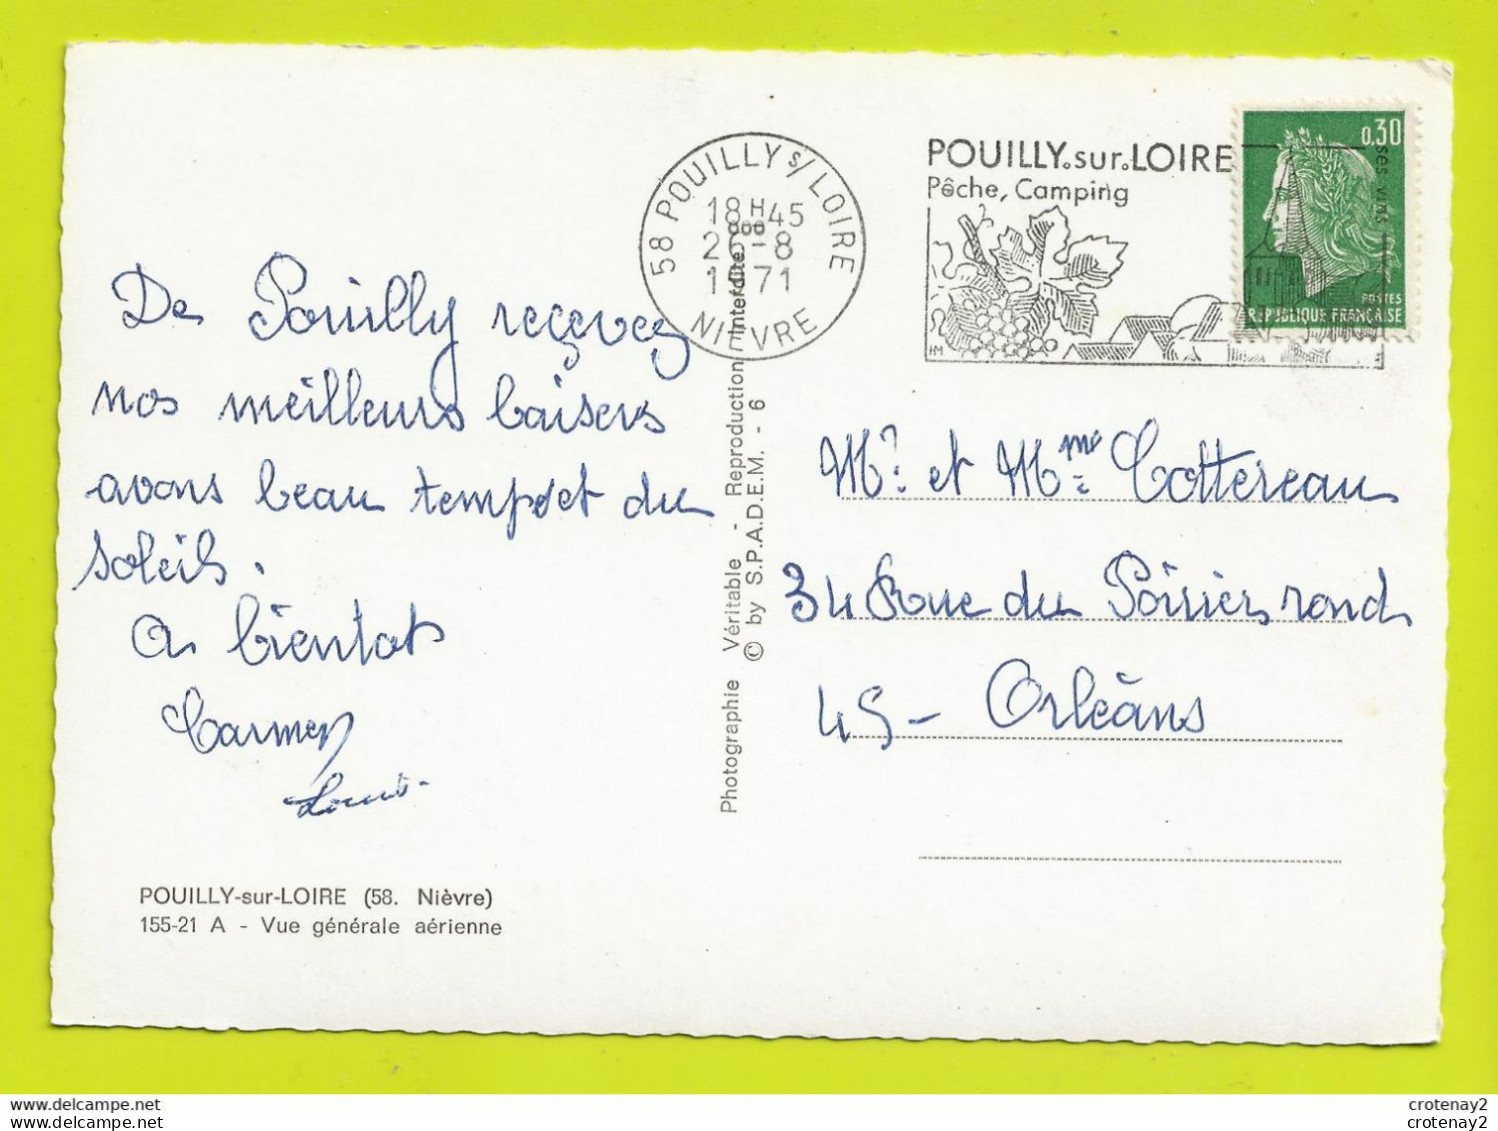 De Pouilly reçevez
nos meilleurs baisers
avons beau temps et du
soleil.
A bientot
Carmen
Louis
POUILLY-sur-LOIRE (58. Nièvre)
155-21 A - Vue générale aérienne
Photographie Véritable - Reproduction Interdite
© by S.P.A.D.E.M. - 6
58 POUILLY s/LOIRE
18 H 45
-8
1971
NIEVRE
POUILLY.sur.LOIRE
Pêche, Camping
ses vins
HM
0,30
POSTES
REPUBLIQUE FRANÇAISE
Mr. et Mme Cottereau
34 Rue du Poirier rond
45 - Orléans
delcampe.net
crotenay2
crotenay2